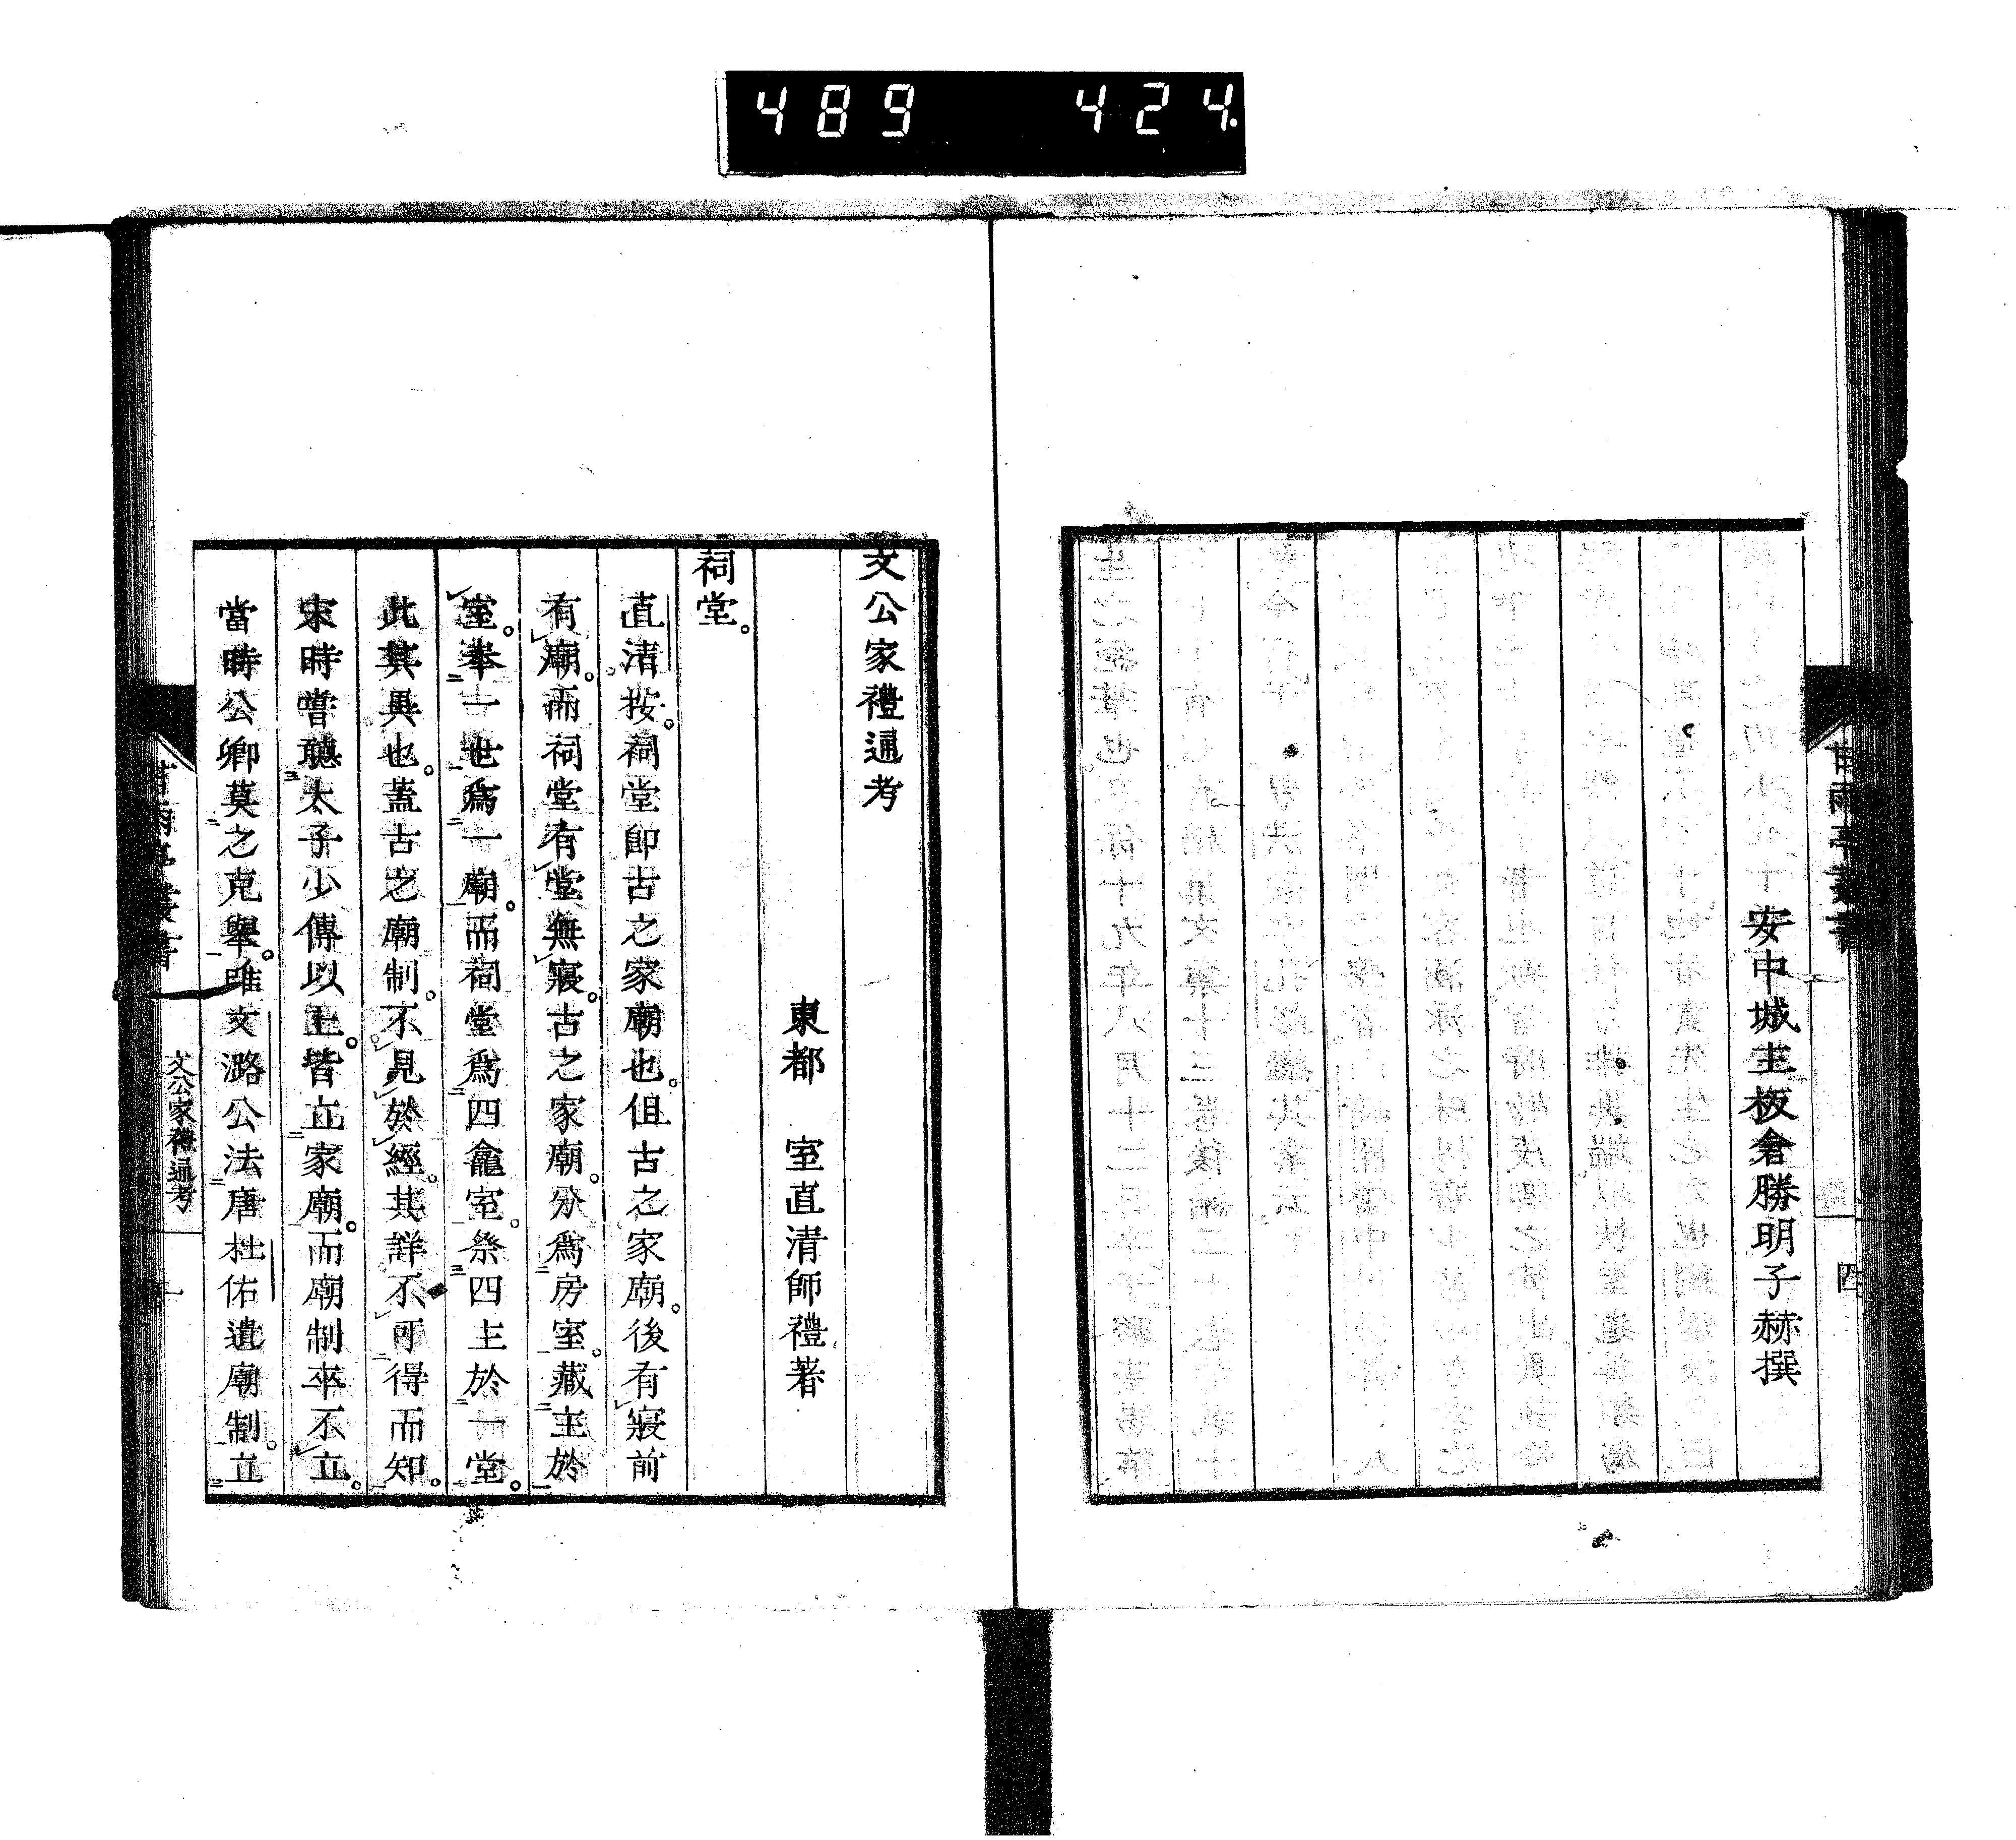 489 424
安中城主板倉勝明子赫撰
甘雨亭叢書
四
文公家禮通考
東都 室直清師禮著
祠堂。
直清按。祠堂即古之家廟也。但古之家廟。後有寢前
有廟。而祠堂有堂無寢。古之家廟。分爲房室。藏主於
室。奉一世爲一廟。而祠堂爲四龕室。祭四主於一堂。
此其異也。蓋古之廟制。不見於經。其詳不可得而知。
宋時嘗聽太子少傅以上。皆立家廟。而廟制卒不立。
當時公卿莫之克舉。唯文潞公法唐杜佑遺廟制。立
文公家禮通考
一